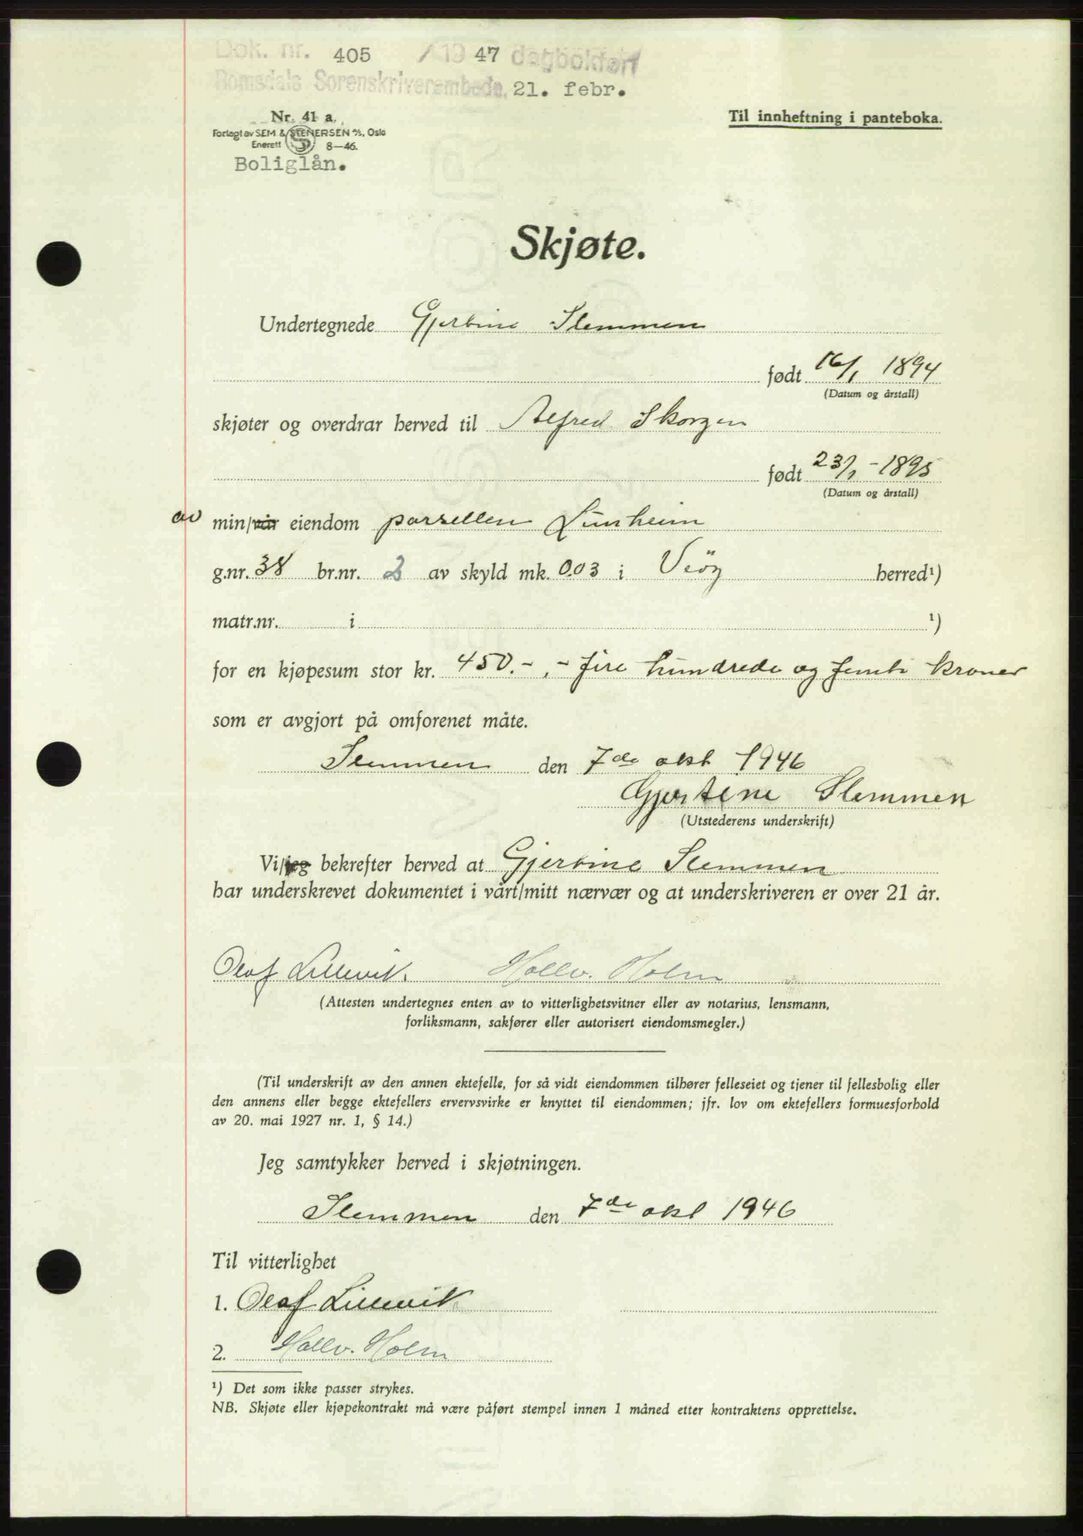 Dok. nr. 405 /19 47 dagbokført
Romsdals Sorenskriverembede, 21. febr.
Nr. 41 a.
Til innheftning i panteboka.
Forlagt av SEM & STENERSEN A/S, Oslo
Enerett 8—46.
Boliglån.
Skjøte.
Undertegnede Gjertine Slemmen
født 16/1 1894
(Datum og årstall)
skjøter og overdrar herved til Alfred Skorgen
født 23/1 - 1895
(Datum og årstall)
av min/vår eiendom parsellen Lünheim
g.nr. 38 br.nr. 2 av skyld mk. 0.03 i Veöy herred¹)
matr.nr. i ¹)
for en kjøpesum stor kr. 450.-, - fire hundrede og femti kroner
som er avgjort på omforenet måte.
Slemmen den 7de okt 1946
Gjertine Slemmen
(Utstederens underskrift)
Vi/jeg bekrefter herved at Gjertine Slemmen
har underskrevet dokumentet i vårt/mitt nærvær og at underskriveren er over 21 år.
Olaf Lillevik. Hallv. Holm
(Attesten undertegnes enten av to vitterlighetsvitner eller av notarius, lensmann,
forliksmann, sakfører eller autorisert eiendomsmegler.)
(Til underskrift av den annen ektefelle, for så vidt eiendommen tilhører felleseiet og tjener til fellesbolig eller
den annens eller begge ektefellers ervervsvirke er knyttet til eiendommen; jfr. lov om ektefellers formuesforhold
av 20. mai 1927 nr. 1, § 14.)
Jeg samtykker herved i skjøtningen.
Slemmen den 7de okt 1946
Til vitterlighet
1. Olaf Lillevik
2. Hallv. Holm
¹) Det som ikke passer strykes.
NB. Skjøte eller kjøpekontrakt må være påført stempel innen 1 måned etter kontraktens opprettelse.